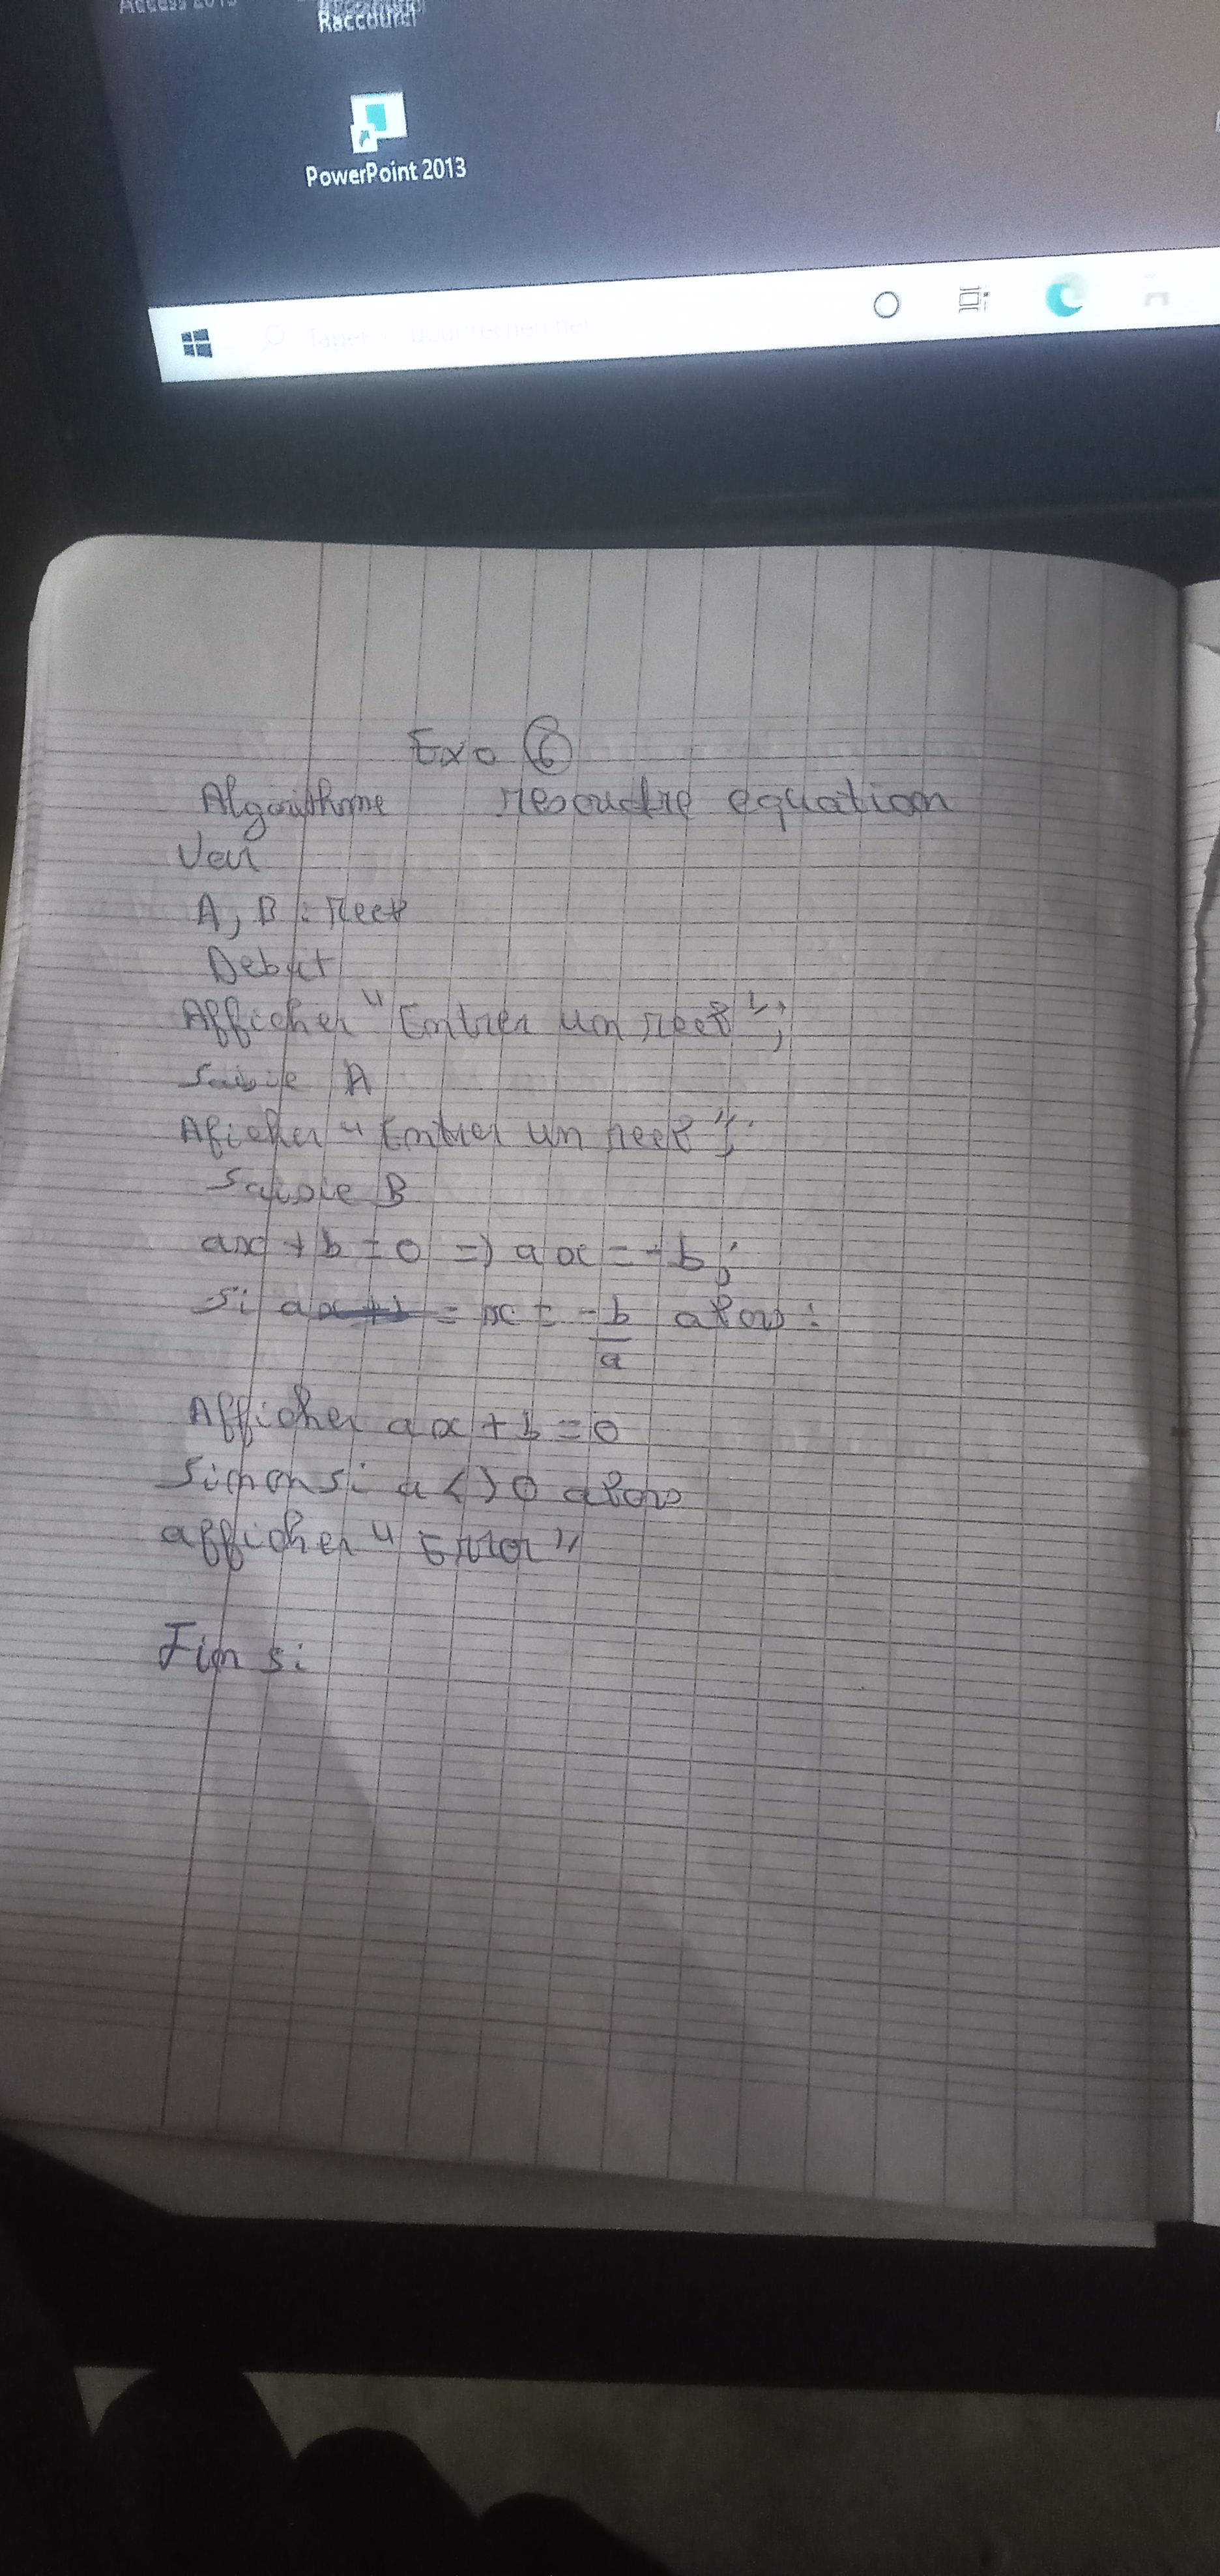 Raccourci
PowerPoint 2013
Exo 6
Algorithme resoudre equation
Var
A, B : reel
Debut
Afficher "Entrer un reel";
Saisie A
Aficher "Entrer un reel";
Saisie B
ax + b = 0 => ax = -b;
Si = x = -b/a alors :
Afficher ax + b = 0
Sinonsi a <> 0 alors
afficher "Error"
Fin si